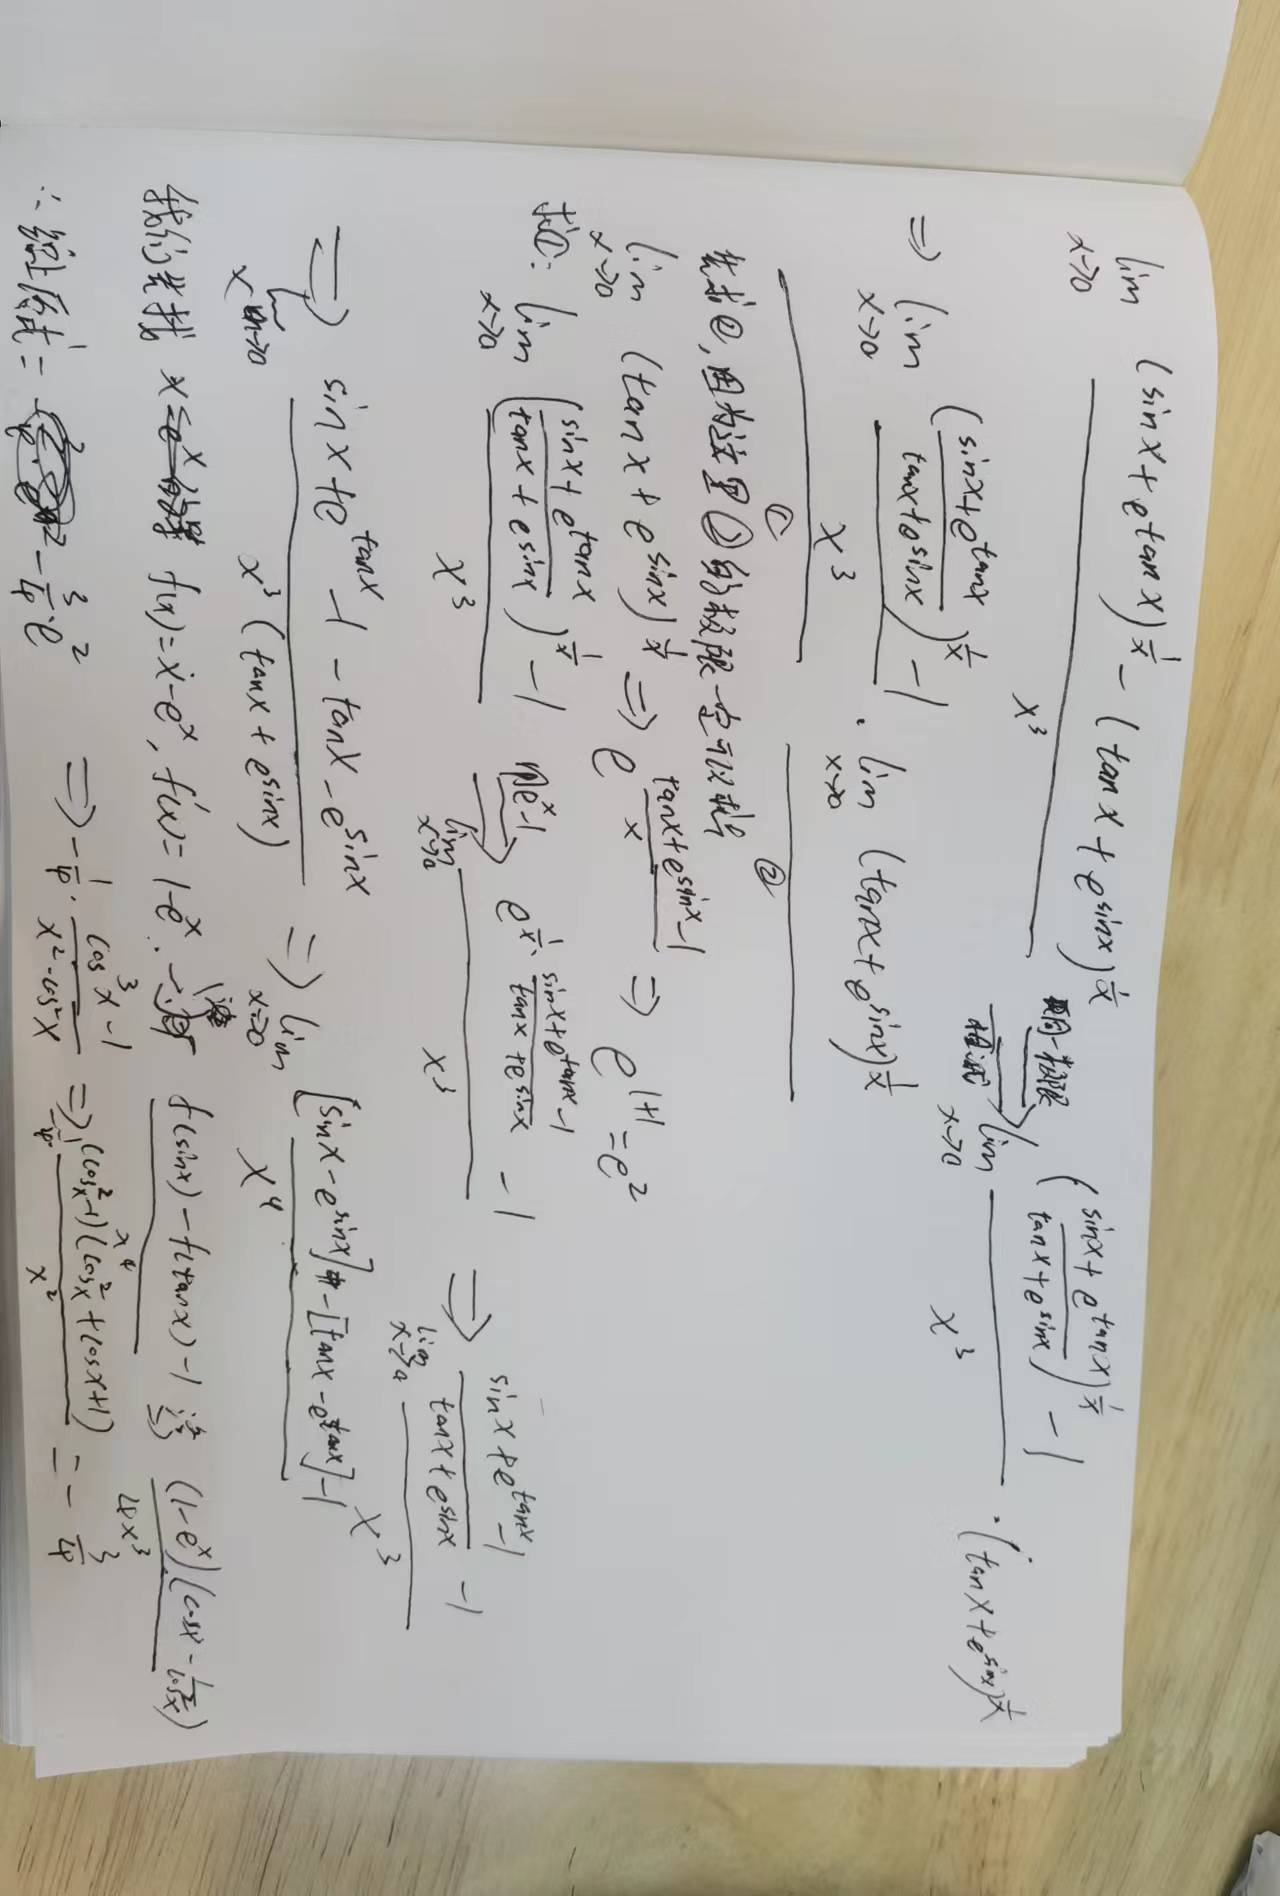 lim x→0 ((sinx + e^tanx)^(1/x) − (tanx + e^sinx)^(1/x)) / x³ ⇒ 同一极限 lim x→0 (((sinx + e^tanx)/(tanx + e^sinx))^(1/x) − 1) / x³ · (tanx + e^sinx)^(1/x)
⇒ lim x→0 (((sinx + e^tanx)/(tanx + e^sinx))^(1/x) − 1) / x³ · lim x→0 (tanx + e^sinx)^(1/x)
① ②
先求②, 因为这里②的极限一定可以求出
lim x→0 (tanx + e^sinx)^(1/x) ⇒ e^((tanx + e^sinx − 1)/x) ⇒ e^(1+1) = e²
求①: lim x→0 (((sinx + e^tanx)/(tanx + e^sinx))^(1/x) − 1) / x³ 用e^x−1 ⇒ lim x→0 (e^(1/x · (sinx + e^tanx − 1)/(tanx + e^sinx)) − 1) / x³ ⇒ lim x→0 ((sinx + e^tanx − 1)/(tanx + e^sinx) − 1) / x³
⇒ lim x→0 (sinx + e^tanx − 1 − tanx − e^sinx) / (x³(tanx + e^sinx)) ⇒ lim x→0 ([sinx − e^sinx] − [tanx − e^tanx] − 1) / x⁴
我们先找 f(x) = x − e^x, f'(x) = 1 − e^x. (f(sinx) − f(tanx) − 1) / x⁴ 洛 ⇒ (1 − e^x)(cosx − 1/cos²x) / 4x³
⇒ −1/4 · (cos³x − 1)/(x² · cos²x) ⇒ −1/4 · (cos²x − 1)(cos²x + cosx + 1) / x² = −3/4
∴ 综上原式 = −3/4 · e²